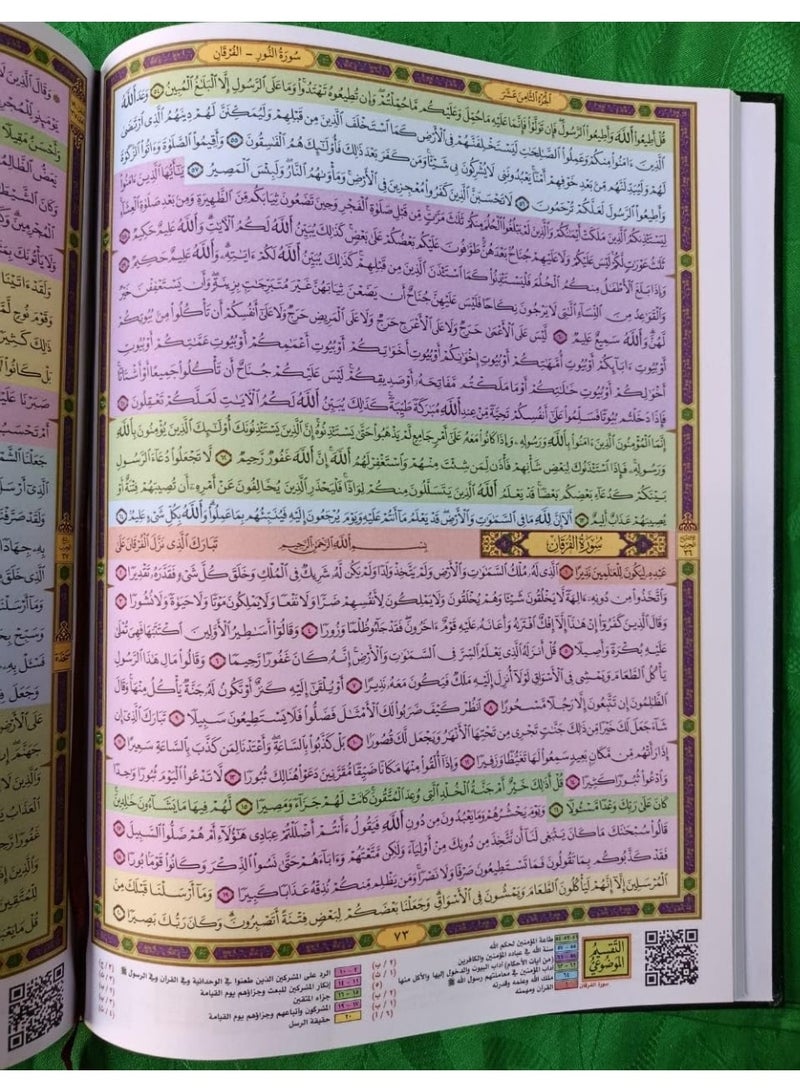 سورة النور - الفرقان
الجزء الثامن عشر
قل أطيعوا الله وأطيعوا الرسول فإن تولوا فإنما عليه ما حمل وعليكم ما حملتم وإن تطيعوه تهتدوا وما على الرسول إلا البلغ المبين ٥٤ وعد الله
الذين ءامنوا منكم وعملوا الصلحت ليستخلفنهم في الأرض كما استخلف الذين من قبلهم وليمكنن لهم دينهم الذي ارتضى
لهم وليبدلنهم من بعد خوفهم أمنا يعبدونني لا يشركون بي شيئا ومن كفر بعد ذلك فأولئك هم الفسقون ٥٥ وأقيموا الصلوة وءاتوا الزكوة
وأطيعوا الرسول لعلكم ترحمون ٥٦ لا تحسبن الذين كفروا معجزين في الأرض ومأوىهم النار ولبئس المصير ٥٧ يأيها الذين ءامنوا
ليستءذنكم الذين ملكت أيمنكم والذين لم يبلغوا الحلم منكم ثلث مرت من قبل صلوة الفجر وحين تضعون ثيابكم من الظهيرة ومن بعد صلوة العشاء
ثلث عورت لكم ليس عليكم ولا عليهم جناح بعدهن طوفون عليكم بعضكم على بعض كذلك يبين الله لكم الأيت والله عليم حكيم ٥٨
وإذا بلغ الأطفل منكم الحلم فليستءذنوا كما استءذن الذين من قبلهم كذلك يبين الله لكم ءايته والله عليم حكيم ٥٩
والقوعد من النساء التي لا يرجون نكاحا فليس عليهن جناح أن يضعن ثيابهن غير متبرجت بزينة وأن يستعففن خير
لهن والله سميع عليم ٦٠ ليس على الأعمى حرج ولا على الأعرج حرج ولا على المريض حرج ولا على أنفسكم أن تأكلوا من بيوتكم
أو بيوت ءابائكم أو بيوت أمهتكم أو بيوت إخونكم أو بيوت أخوتكم أو بيوت أعممكم أو بيوت عمتكم أو بيوت
أخولكم أو بيوت خلتكم أو ما ملكتم مفاتحه أو صديقكم ليس عليكم جناح أن تأكلوا جميعا أو أشتاتا
فإذا دخلتم بيوتا فسلموا على أنفسكم تحية من عند الله مبركة طيبة كذلك يبين الله لكم الأيت لعلكم تعقلون ٦١
إنما المؤمنون الذين ءامنوا بالله ورسوله وإذا كانوا معه على أمر جامع لم يذهبوا حتى يستءذنوه إن الذين يستءذنونك أولئك الذين يؤمنون بالله
ورسوله فإذا استءذنوك لبعض شأنهم فأذن لمن شئت منهم واستغفر لهم الله إن الله غفور رحيم ٦٢ لا تجعلوا دعاء الرسول
بينكم كدعاء بعضكم بعضا قد يعلم الله الذين يتسللون منكم لواذا فليحذر الذين يخالفون عن أمره أن تصيبهم فتنة أو
يصيبهم عذاب أليم ٦٣ ألا إن لله ما في السموت والأرض قد يعلم ما أنتم عليه ويوم يرجعون إليه فينبئهم بما عملوا والله بكل شيء عليم ٦٤
سورة الفرقان بسم الله الرحمن الرحيم تبارك الذي نزل الفرقان على
عبده ليكون للعلمين نذيرا ١ الذي له ملك السموت والأرض ولم يتخذ ولدا ولم يكن له شريك في الملك وخلق كل شيء فقدره تقديرا ٢
واتخذوا من دونه ءالهة لا يخلقون شيئا وهم يخلقون ولا يملكون لأنفسهم ضرا ولا نفعا ولا يملكون موتا ولا حيوة ولا نشورا ٣
وقال الذين كفروا إن هذا إلا إفك افترىه وأعانه عليه قوم ءاخرون فقد جاءو ظلما وزورا ٤ وقالوا أسطير الأولين اكتتبها فهي تملى
عليه بكرة وأصيلا ٥ قل أنزله الذي يعلم السر في السموت والأرض إنه كان غفورا رحيما ٦ وقالوا مال هذا الرسول
يأكل الطعام ويمشي في الأسواق لولا أنزل إليه ملك فيكون معه نذيرا ٧ أو يلقى إليه كنز أو تكون له جنة يأكل منها وقال
الظلمون إن تتبعون إلا رجلا مسحورا ٨ انظر كيف ضربوا لك الأمثل فضلوا فلا يستطيعون سبيلا ٩ تبارك الذي إن
شاء جعل لك خيرا من ذلك جنت تجري من تحتها الأنهر ويجعل لك قصورا ١٠ بل كذبوا بالساعة وأعتدنا لمن كذب بالساعة سعيرا ١١
إذا رأتهم من مكان بعيد سمعوا لها تغيظا وزفيرا ١٢ وإذا ألقوا منها مكانا ضيقا مقرنين دعوا هنالك ثبورا ١٣ لا تدعوا اليوم ثبورا وحدا
وادعوا ثبورا كثيرا ١٤ قل أذلك خير أم جنة الخلد التي وعد المتقون كانت لهم جزاء ومصيرا ١٥ لهم فيها ما يشاءون خلدين
كان على ربك وعدا مسءولا ١٦ ويوم يحشرهم وما يعبدون من دون الله فيقول ءأنتم أضللتم عبادي هؤلاء أم هم ضلوا السبيل ١٧
قالوا سبحنك ما كان ينبغي لنا أن نتخذ من دونك من أولياء ولكن متعتهم وءاباءهم حتى نسوا الذكر وكانوا قوما بورا ١٨
فقد كذبوكم بما تقولون فما تستطيعون صرفا ولا نصرا ومن يظلم منكم نذقه عذابا كبيرا ١٩ وما أرسلنا قبلك من
المرسلين إلا إنهم ليأكلون الطعام ويمشون في الأسواق وجعلنا بعضكم لبعض فتنة أتصبرون وكان ربك بصيرا ٢٠
٧٣
التقسيم الموضوعي
طاعة المؤمنين لحكم الله
سنة الله في عباده المؤمنين والكافرين
(من آيات الأحكام) آداب البيوت والدخول إليها والأكل منها
آداب المؤمنين في معاملتهم رسول الله ﷺ
ملك الله وعلمه وقدرته
القرآن ومهمته
سورة الفرقان
الرد على المشركين الذين طعنوا في الوحدانية وفي القرآن وفي الرسول ﷺ
إنكار المشركين للبعث وجزاؤهم يوم القيامة
جزاء المتقين
المشركون وأتباعهم وجزاؤهم يوم القيامة
حقيقة الرسل